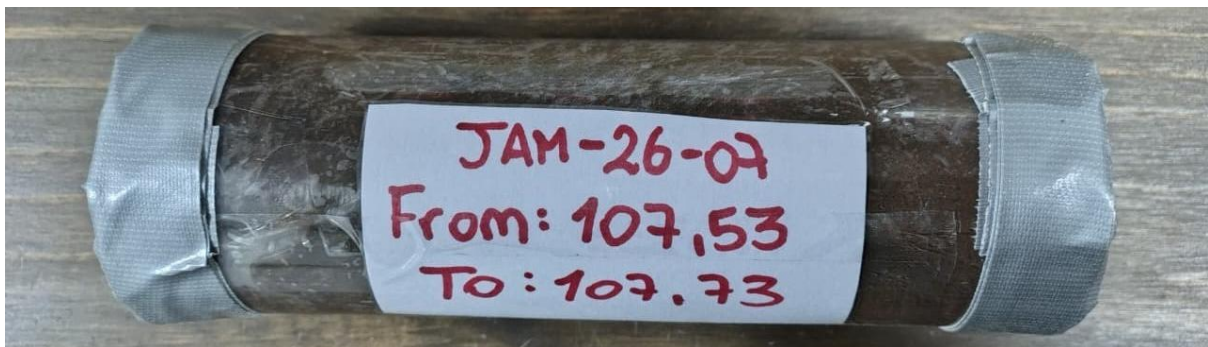 JAM-26-07
From: 107,53
To: 107.73